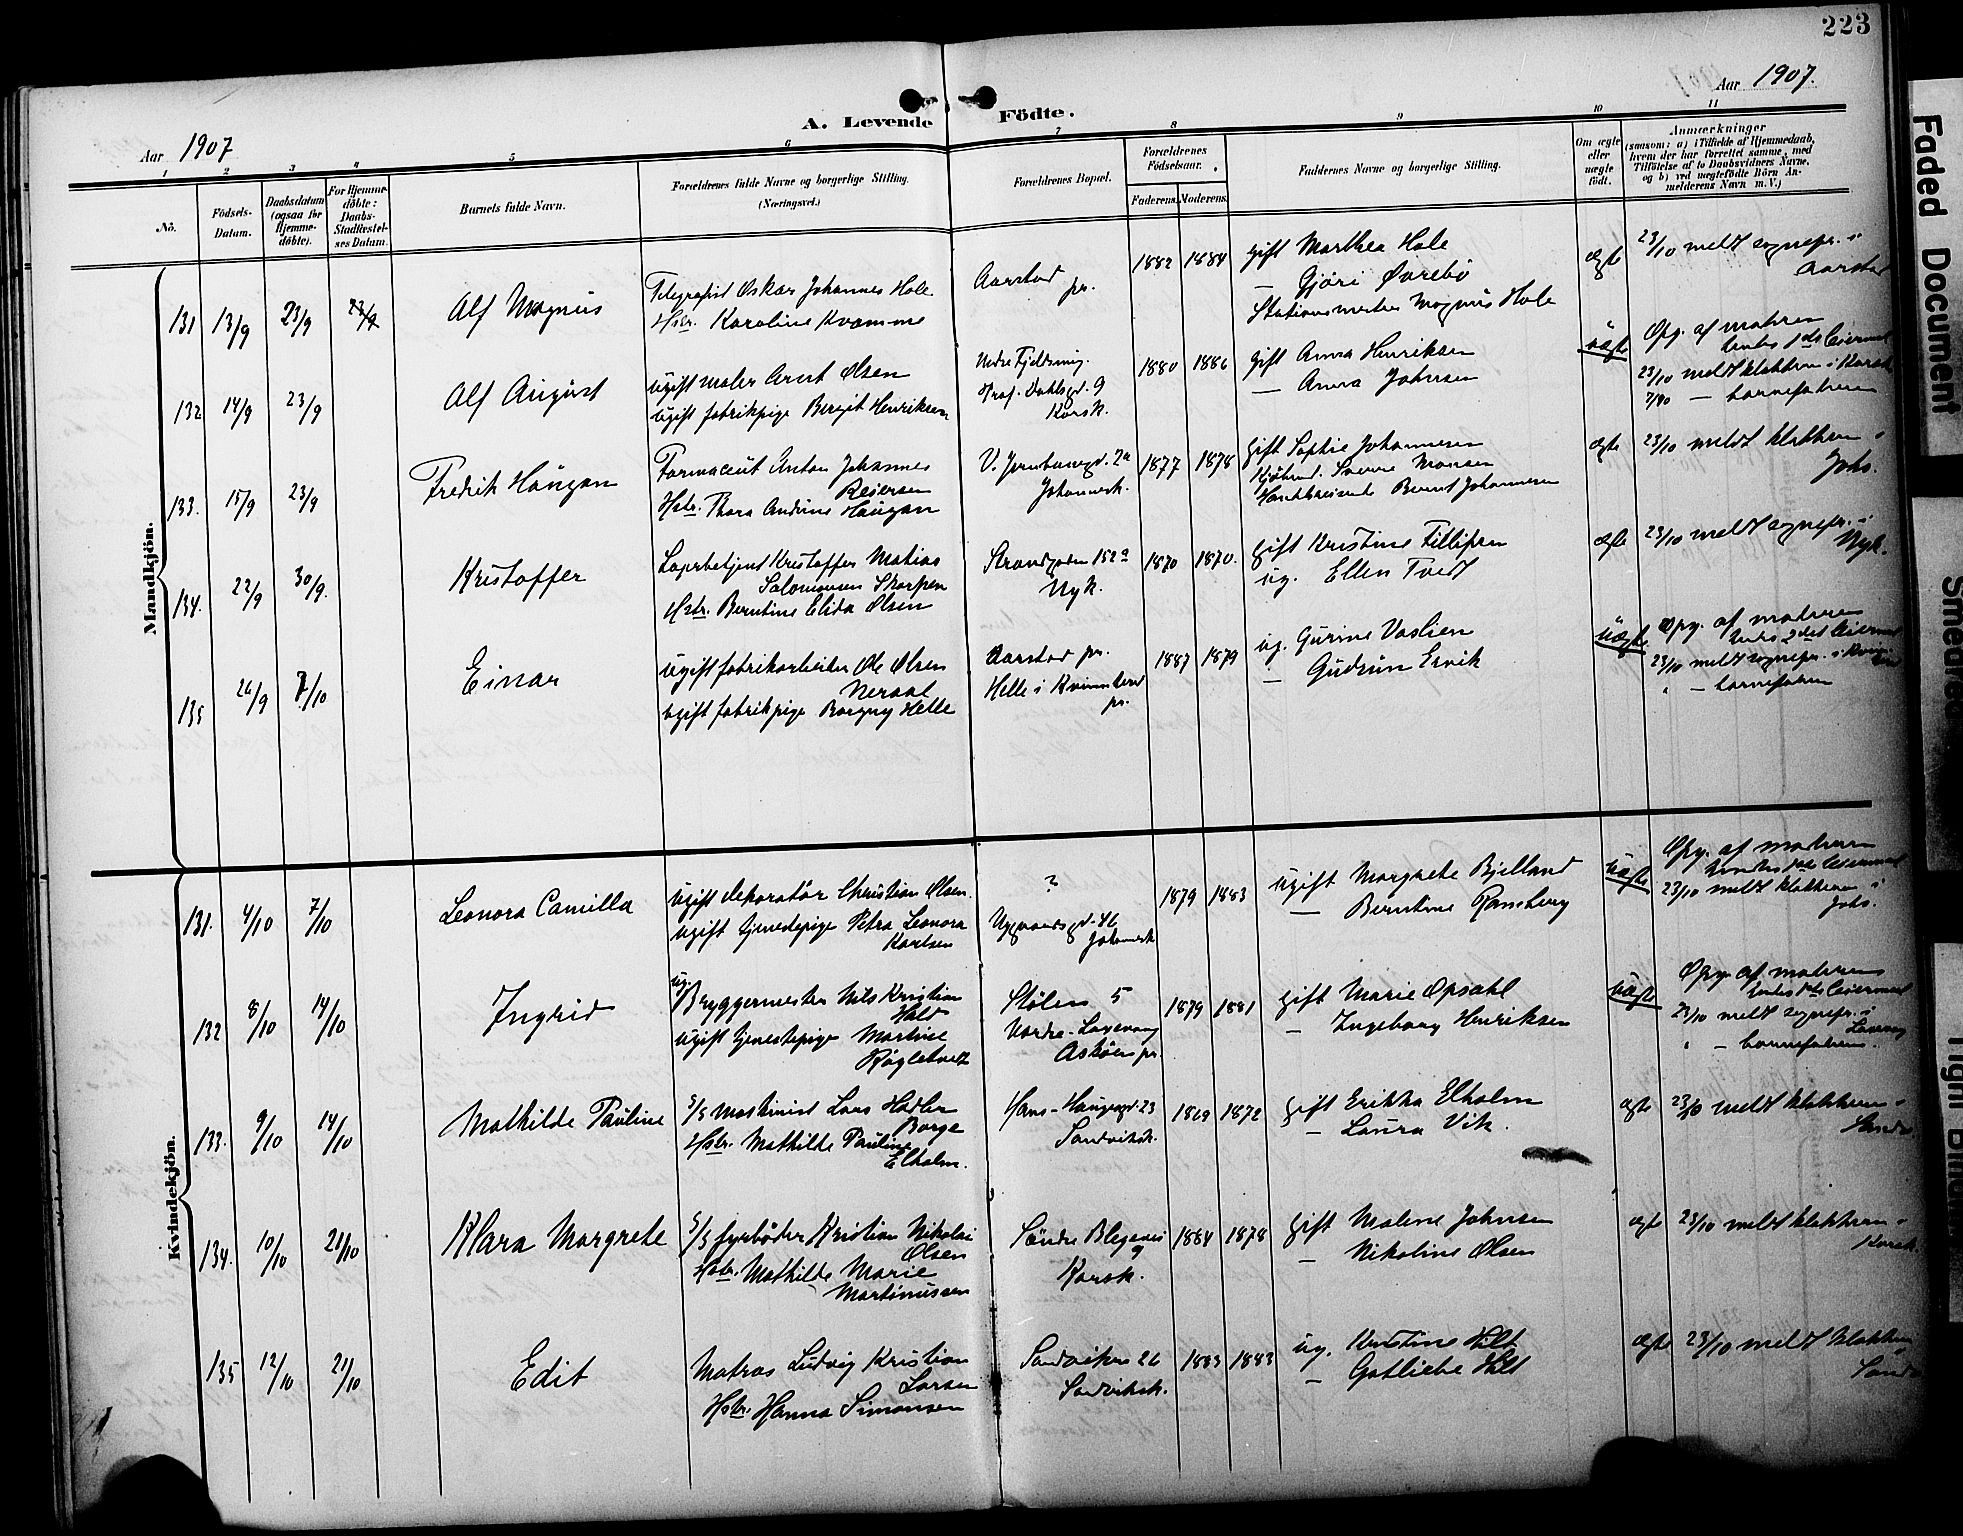 223
Aar 1907
Aar 1907.
A. Levende Födte.
1 2 3 4 5 6 7 8 9 10 11
No.
Födsels-
Datum.
Daabsdatum
(ogsaa for
Hjemme-
döbte).
For Hjemme-
döbte:
Daabs-
Stadfæstel-
ses Datum.
Barnets fulde Navn.
Forældrenes fulde Navne og borgerlige Stilling.
(Næringsvei.)
Forældrenes Bopæl.
Forældrenes
Födselsaar.
Faderens. Moderens.
Faddernes Navne og borgerlige Stilling.
Om ægte
eller
uægte
født.
Anmærkninger
(saasom: a) i Tilfælde af Hjemmedaab,
hvem der har forrettet samme, med
Tilföielse af to Daabsvidners Navne,
og b) ved uægtefödte Börn An-
melderens Navn m. V.)
Mandkjön.
131 13/9 23/9 23/9 Alf Magnus
Telegrafist Oskar Johannes Hole.
Hstr. Karoline Kvamme
Aarstad
pr.
1882 1884
gift Marthea Hole
— Gjöri Øvrebö
Stationsmester Magnus Hole
ægte
23/10 meldt sognepr. i
Aarstad
132 14/9 23/9 Alf August
ugift maler Arnt Olsen
ugift fabrikpige Bergit Henriksen
Nedre Fjeldsmug.
Prof. Dahlsgd. 9
Korsk.
1880 1886
gift Anna Henriksen
— Anna Johnsen
uægte
Opg. af moderen
23/10 meldt klokkeren i Korsk
— barnefaderen
133. 15/9 23/9 Fredrik Haugan
Farmaceut Anton Johannes
Reiersen
Hstr. Thora Andrine Haugan
V. Jernbanegd. 2a
Johannesk.
1877 1878
gift Sophie Johannesen
Kjöbmd. Sverre Monsen
Bernt Johannesen
ægte
23/10 meldt klokkeren i
Johs.
134. 22/9 30/9. Kristoffer
Lagerbetjent Kristoffer Mathias
Salomonsen Skorpen
Hstr. Berntine Elida Olsen
Strandgaden 152a
Nyk.
1870 1870.
gift Kristine Fillipsen
ug. Ellen Tvedt
ægte
23/10 meldt sognepr. i
Nyk.
135 26/9 7/10 Einar
ugift fabrikarbeider Ole Olsen
Neraal
ugift fabrikpige Borgny Helle
Aarstad pr.
Helle i Kvinnherred
pr.
1887 1879
ug. Gurine Vaslien
— Gudrun Ervik
uægte
Opg. af moderen
23/10 meldt sognepr. i
" — barnefaderen
Kvindekjön.
131. 4/10 7/10 Leonora Camilla
ugift dekoratör Christian Olsen.
ugift tjenestepige Petra Leonora
Karlsen
?
Nygaardsgd. 46
Johannesk
1879 1883
ugift Margrete Bjelland
— Berntine Ramberg
uægte
Opg. af moderen
23/10 meldt klokkeren i
Johs.
132 8/10 14/10 Ingrid
ug. Bryggermester Nils Kristian
Hald
ugift tjenestepige Martine
Rögletvedt
Stölen 5
Askøen pr.
1879 1881
gift Marie Opsahl
— Ingeborg Henriksen
uægte
Opg. af moderen
23/10 meldt sognepr. i
" — barnefaderen.
133. 9/10 14/10 Mathilde Pauline
S/S maskinist Lars Hadler
Borge
Hstr. Mathilde Pauline
Elholm.
Hans-Haugesgd. 23
Sandviksk.
1869 1872
gift Erikka Elholm
— Laura Vik.
ægte
23/10 meldt klokkeren i
Sandv.
134. 10/10 21/10 Klara Margrete
S/S fyrböder Kristian Nikolai
Olsen
Hstr. Mathilde Marie
Martinussen
Söndre Blegevei
9
Korsk.
1884 1878
gift Malene Johnsen
— Nikoline Olsen
ægte
23/10 meldt klokkeren i
Korsk.
135 12/10 21/10 Edit
Matros Ludvig Kristian
Larsen
Hstr. Hanna Simonsen
Sandviken 26
Sandviksk.
1883 1883
ug. Kristine Hilt
— Gotliebe Hilt
ægte
23/10 meldt klokkeren
Sandv
Faded Document
Smeared
Tight Binding